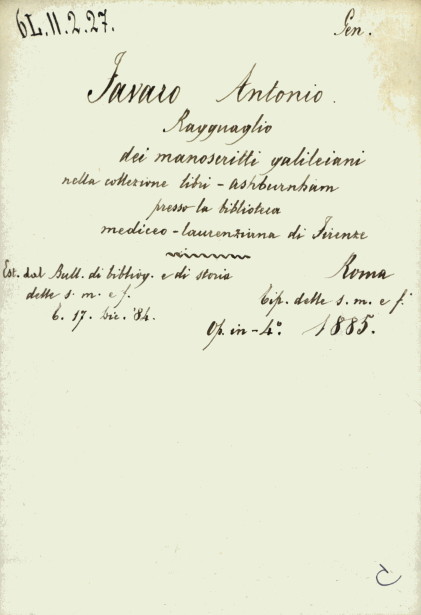 6L.11.2.27.
Gen.
Favaro Antonio.
Ragguaglio
dei manoscritti galileiani
nella collezione libri - ashburnham
presso la biblioteca
mediceo - laurenziana di Firenze
Est. dal Bull. di bibliog. e di storia
delle s. m. e f.
T. 17. Dic. '84.
Roma
Tip. delle s. m. e f.
Op. in - 4°. 1885.